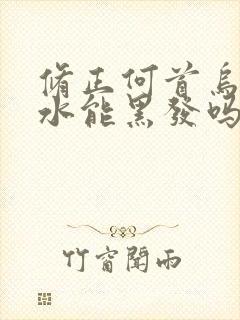 脩正何首烏
水能黑發嗎
竹窗聞雨